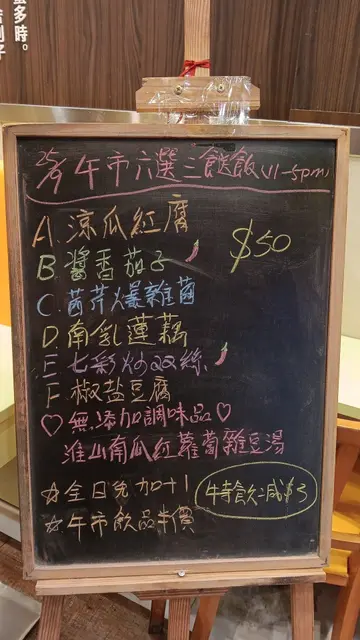 蛋多時。
25/9 午市六選三餸飯(11-5pm)
A. 涼瓜紅腐
$50
B. 醬香茄子
C. 西芹爆雜菌
D. 南乳蓮藕
E. 七彩炒双絲
F. 椒盐豆腐
♡無添加調味品♡
淮山南瓜紅蘿蔔雜豆湯
☆全日免加十1
特飲減$3
☆午市飲品半價